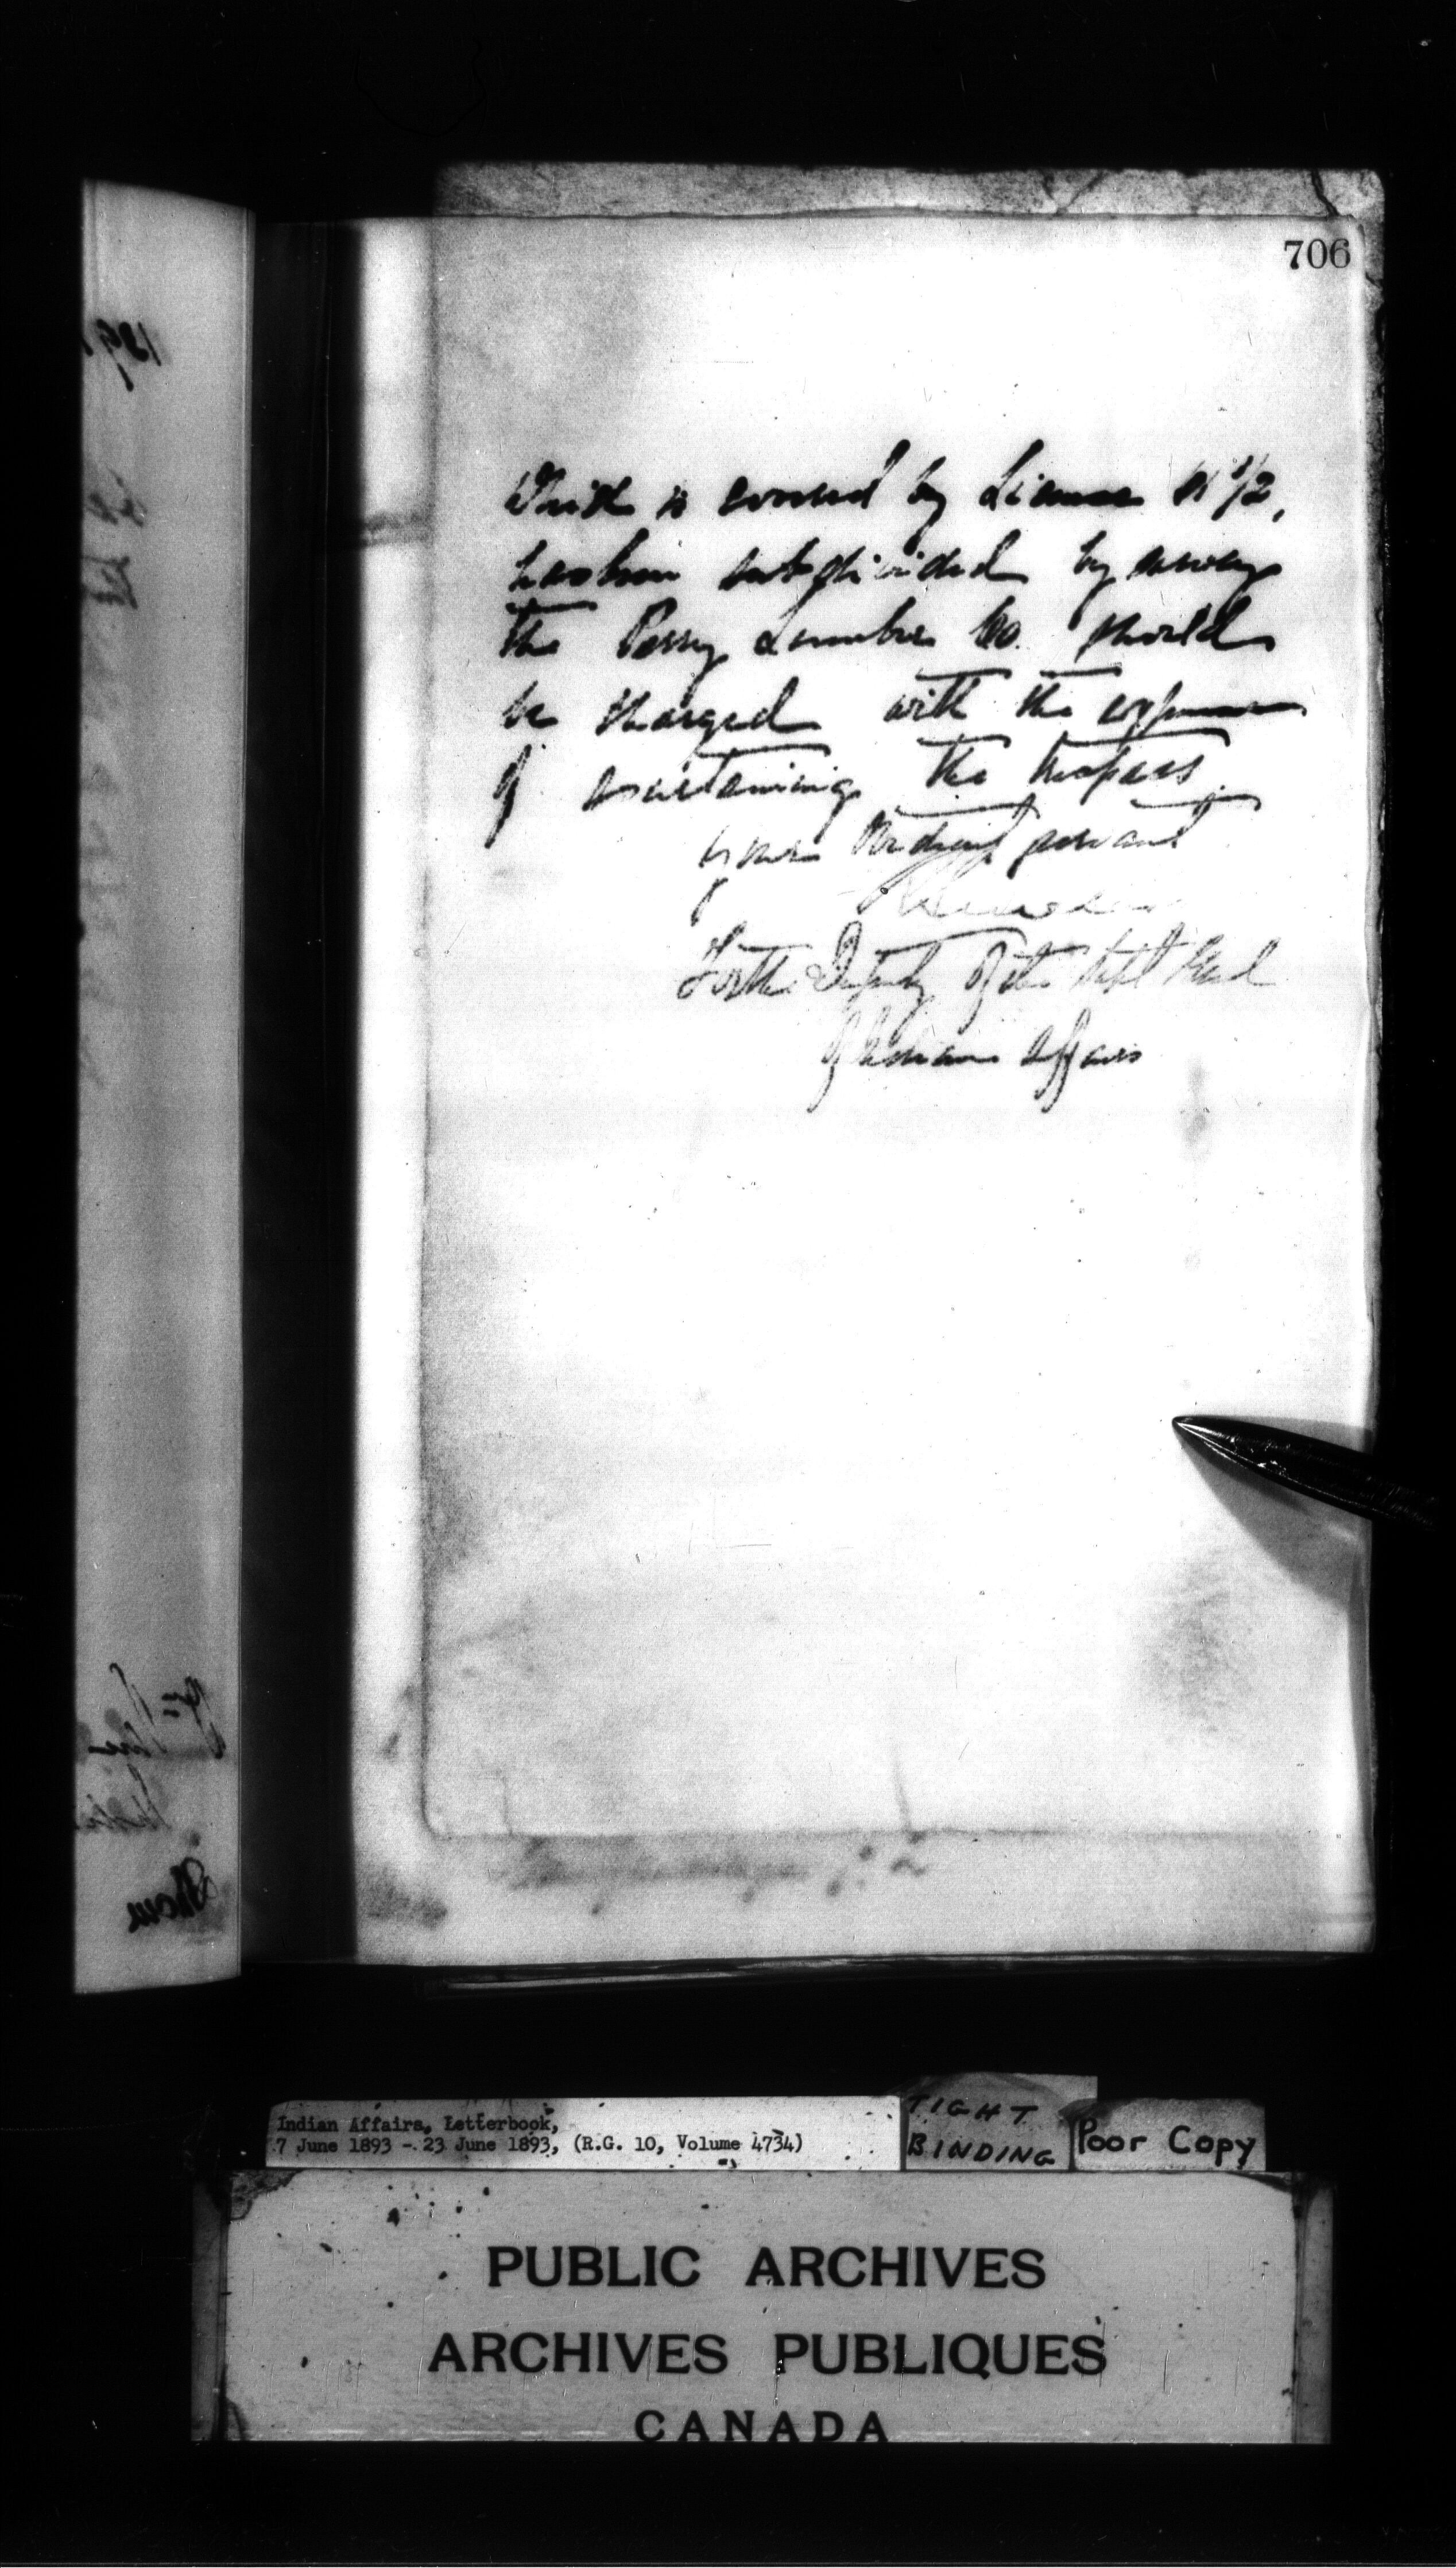 706
Which is covered by License
has been subdivided by survey
the Parry Lumber Co. should
be charged with the expense
of ascertaining the trespass.
your obedient servant
For the Deputy of the Supt Genl
of Indian Affairs
Indian Affairs, Letterbook,
7 June 1893 - 23 June 1893, (R.G. 10, Volume 4734)
TIGHT
BINDING
Poor Copy
PUBLIC ARCHIVES
ARCHIVES PUBLIQUES
CANADA